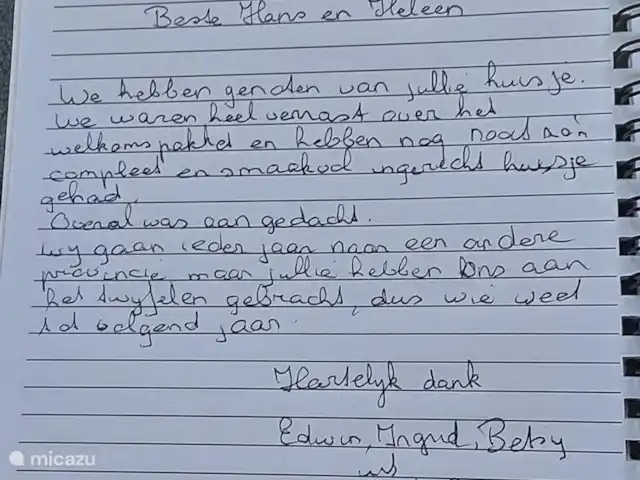 Beste Hans en Heleen
We hebben genoten van jullie huisje.
We waren heel verrast over het
welkomspakket en hebben nog nooit zo'n
compleet en smaakvol ingericht huisje
gehad.
Overal was aan gedacht.
Wij gaan ieder jaar naar een andere
provincie maar jullie hebben ons aan
het twyfelen gebracht, dus wie weet
tot volgend jaar.
Hartelyk dank
Edwin, Ingrid, Betsy
micazu